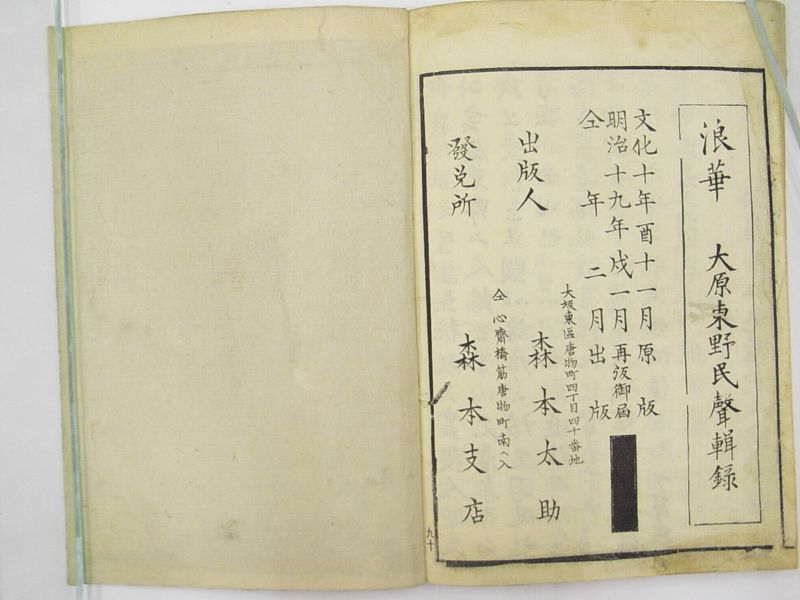 浪華 大原東野民聲輯録
文化十年酉十一月原版
明治十九年戌一月再版御届
仝年二月出版
大坂東區唐物町四丁目四十番地
出版人 森本太助
仝心齋橋筋唐物町南ヘ入
發兌所 森本支店
九十